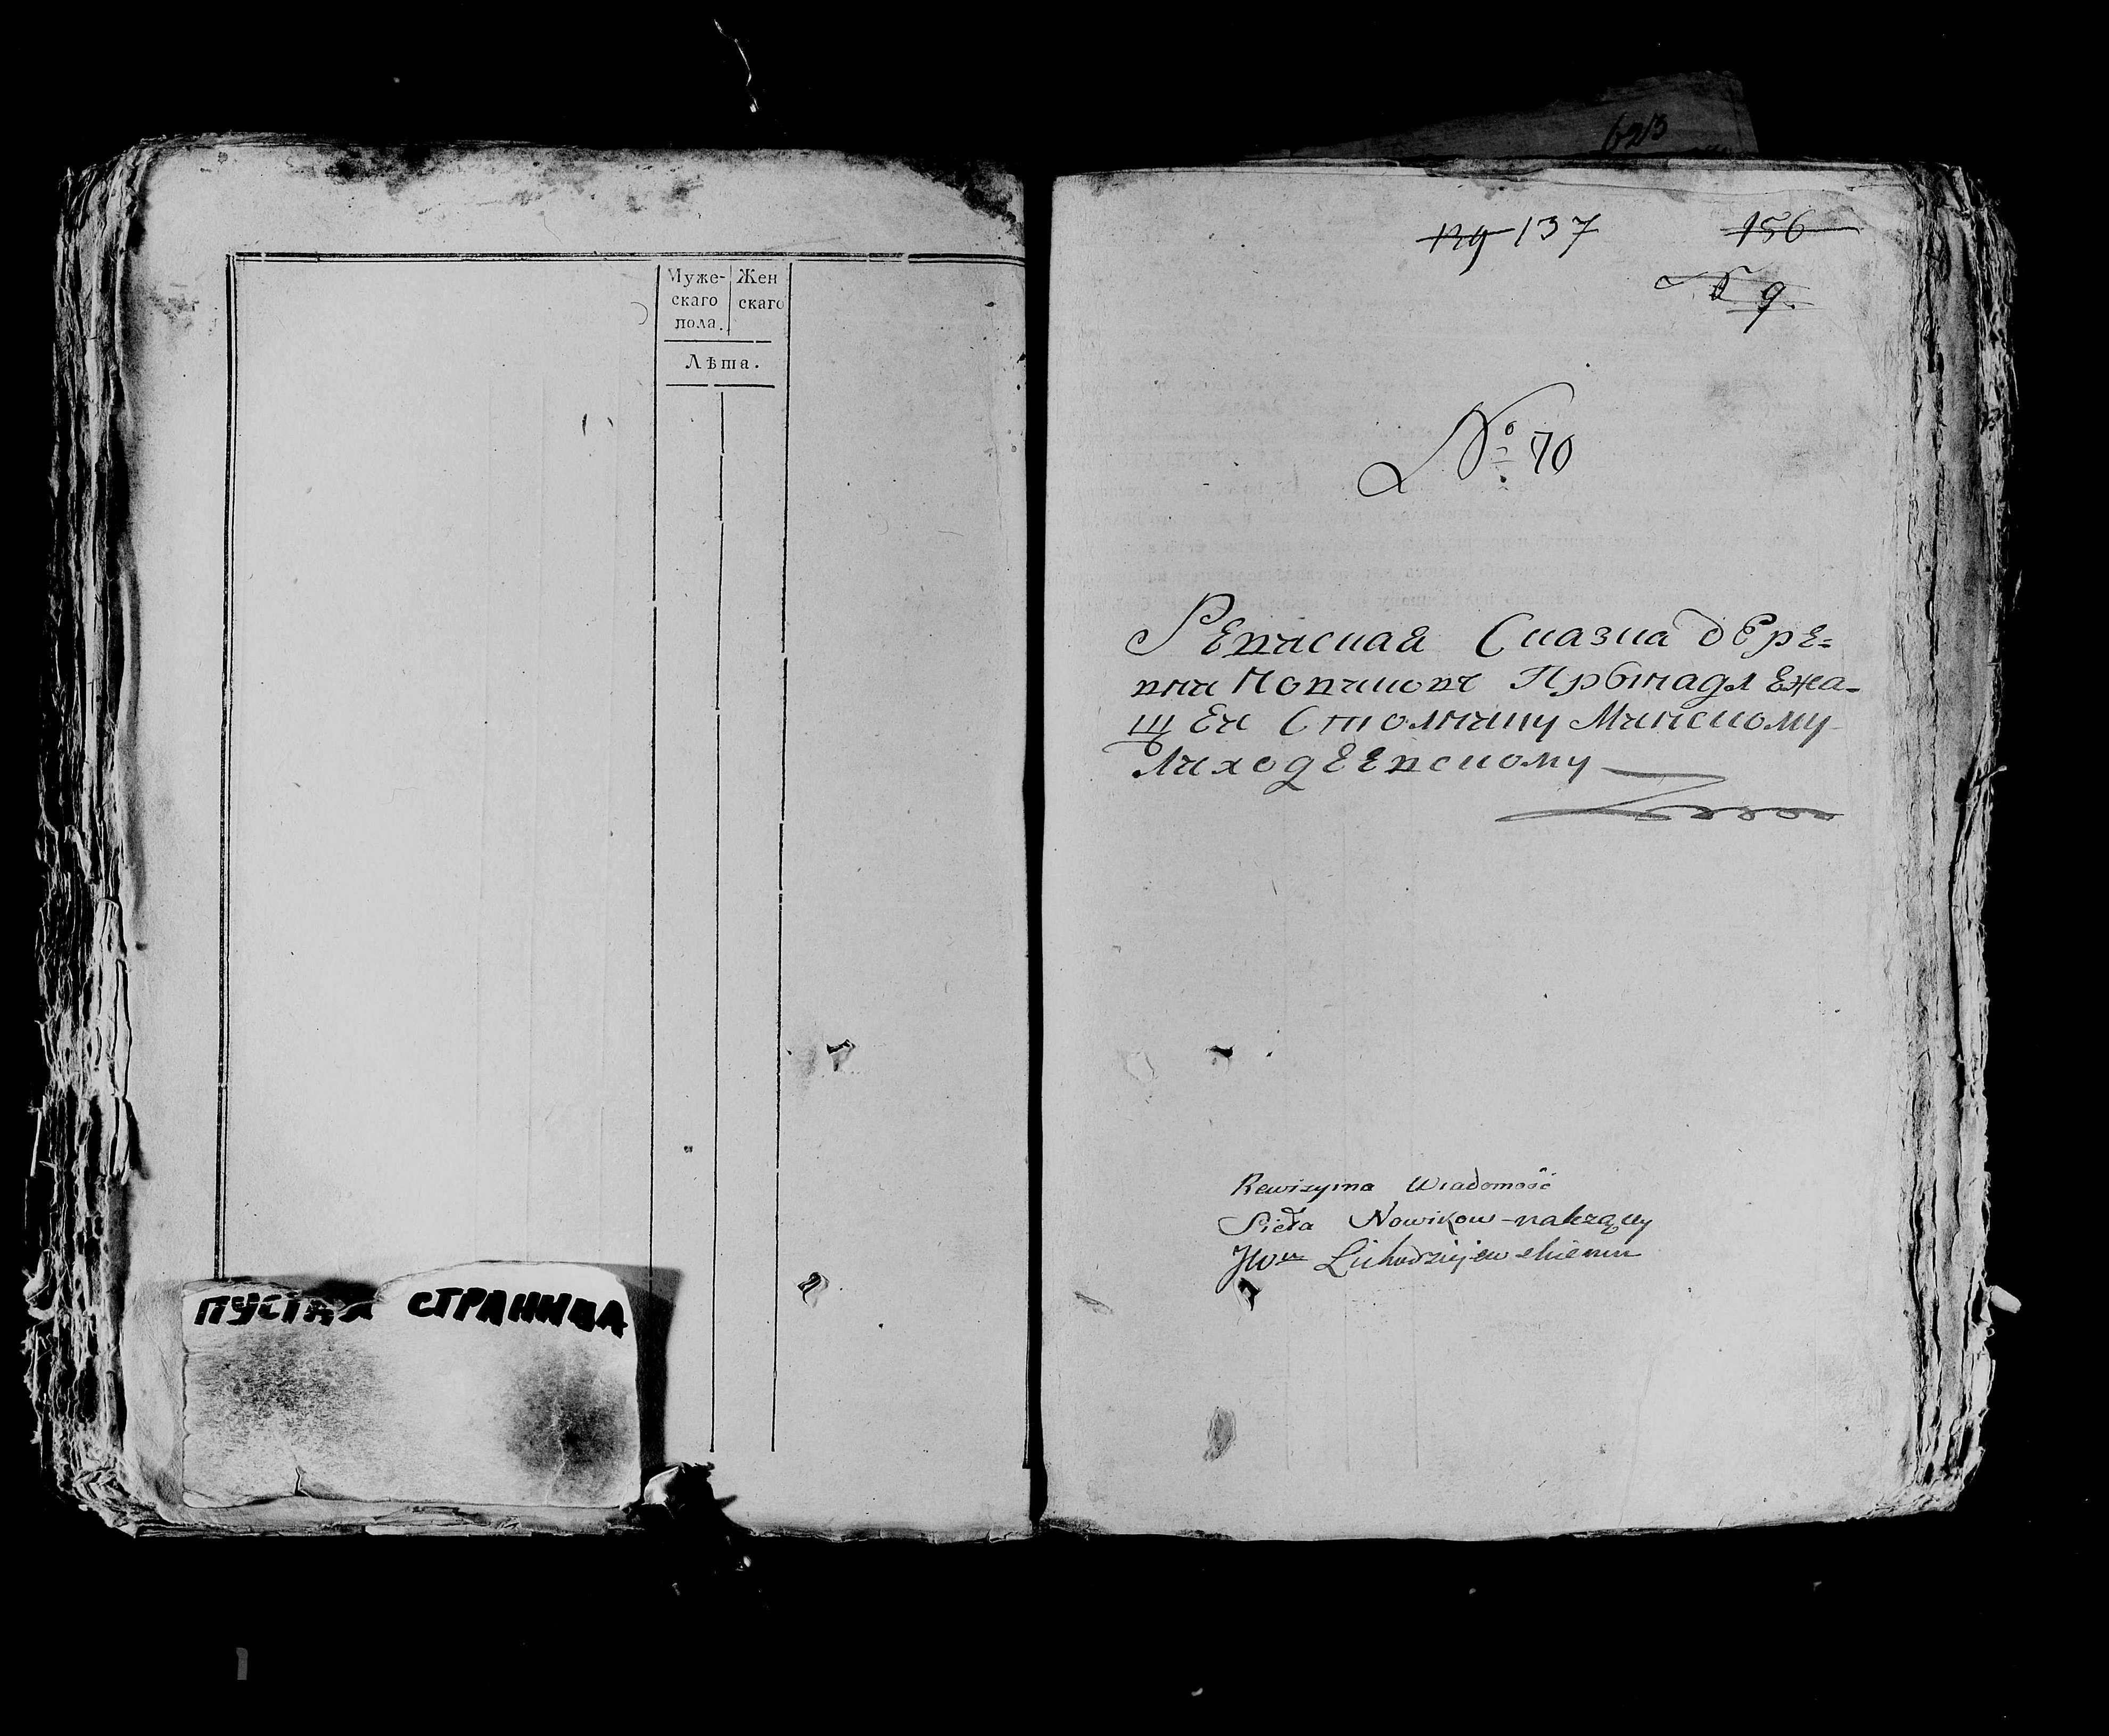 Муже-
скаго
пола.
Жен
скаго
Лѣта.
ПУСТАЯ СТРАНИЦА
623
139 137
156
№ 9.
№ 70
Ревиская Сказка дере-
вни Новиков Прынадлежа-
щеи Столнику Минскому
Лиходеевскому
Rewizyina Wiadomość
Sioła Nowikow należący
JWu Lichodziejewskiemu